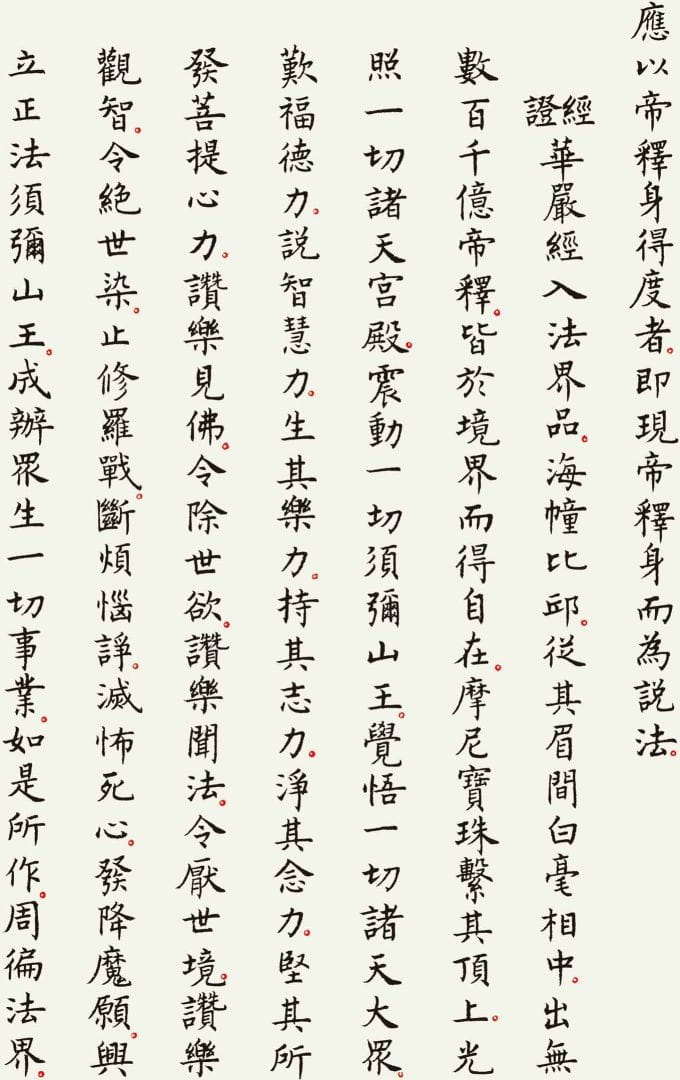 應以帝釋身得度者。即現帝釋身而為說法。
證經　華嚴經入法界品。海幢比邱。從其眉間白毫相中。出無
數百千億帝釋。皆於境界而得自在。摩尼寶珠繫其頂上。光
照一切諸天宮殿。震動一切須彌山王。覺悟一切諸天大眾。
歎福德力。說智慧力。生其樂力。持其志力。淨其念力。堅其所
發菩提心力。讚樂見佛。令除世欲。讚樂聞法。令厭世境。讚樂
觀智。令絕世染。止修羅戰。斷煩惱諍。滅怖死心。發降魔願。興
立正法須彌山王。成辦眾生一切事業。如是所作。周徧法界。